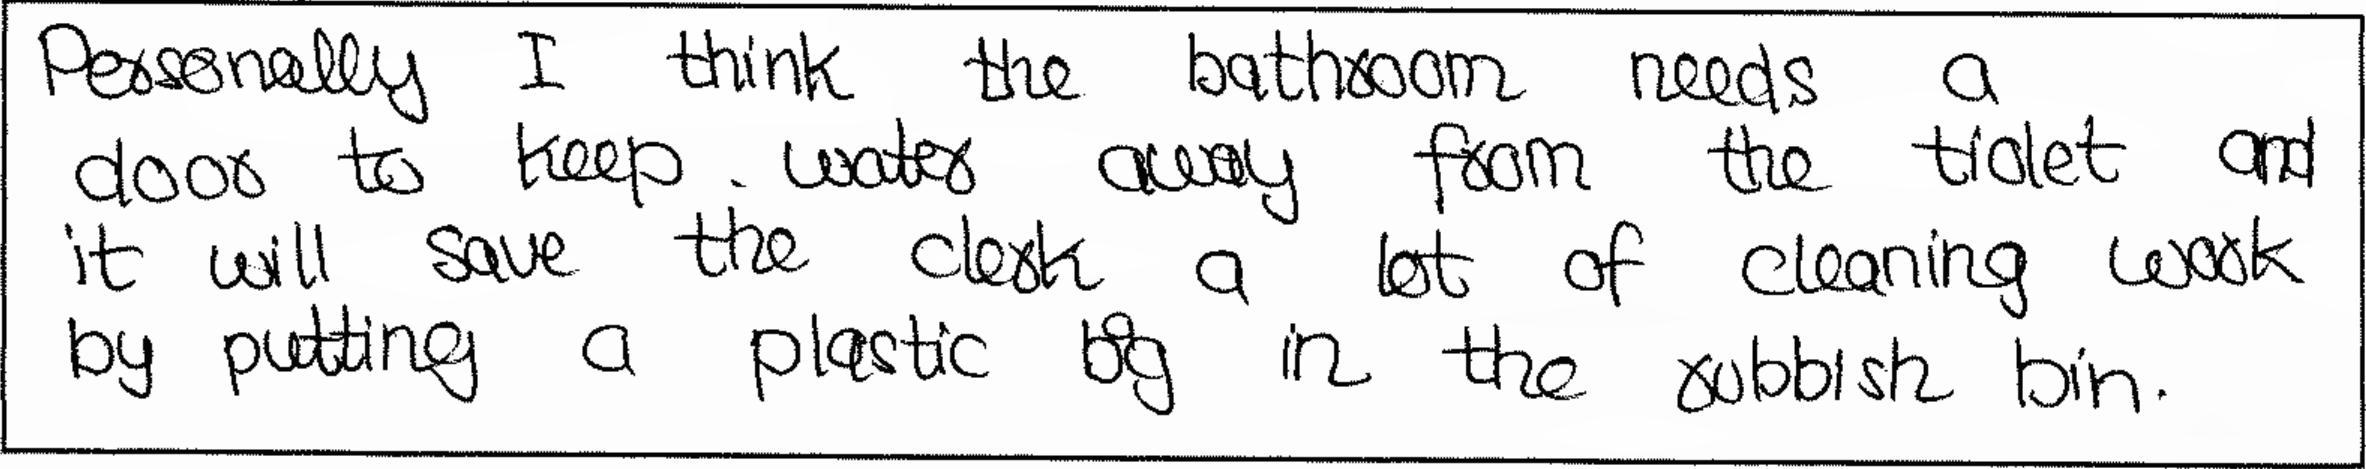 Personally I think the bathroom needs a
door to keep water away from the tiolet and
it will save the clerk a lot of cleaning work
by putting a plastic bag in the rubbish bin.